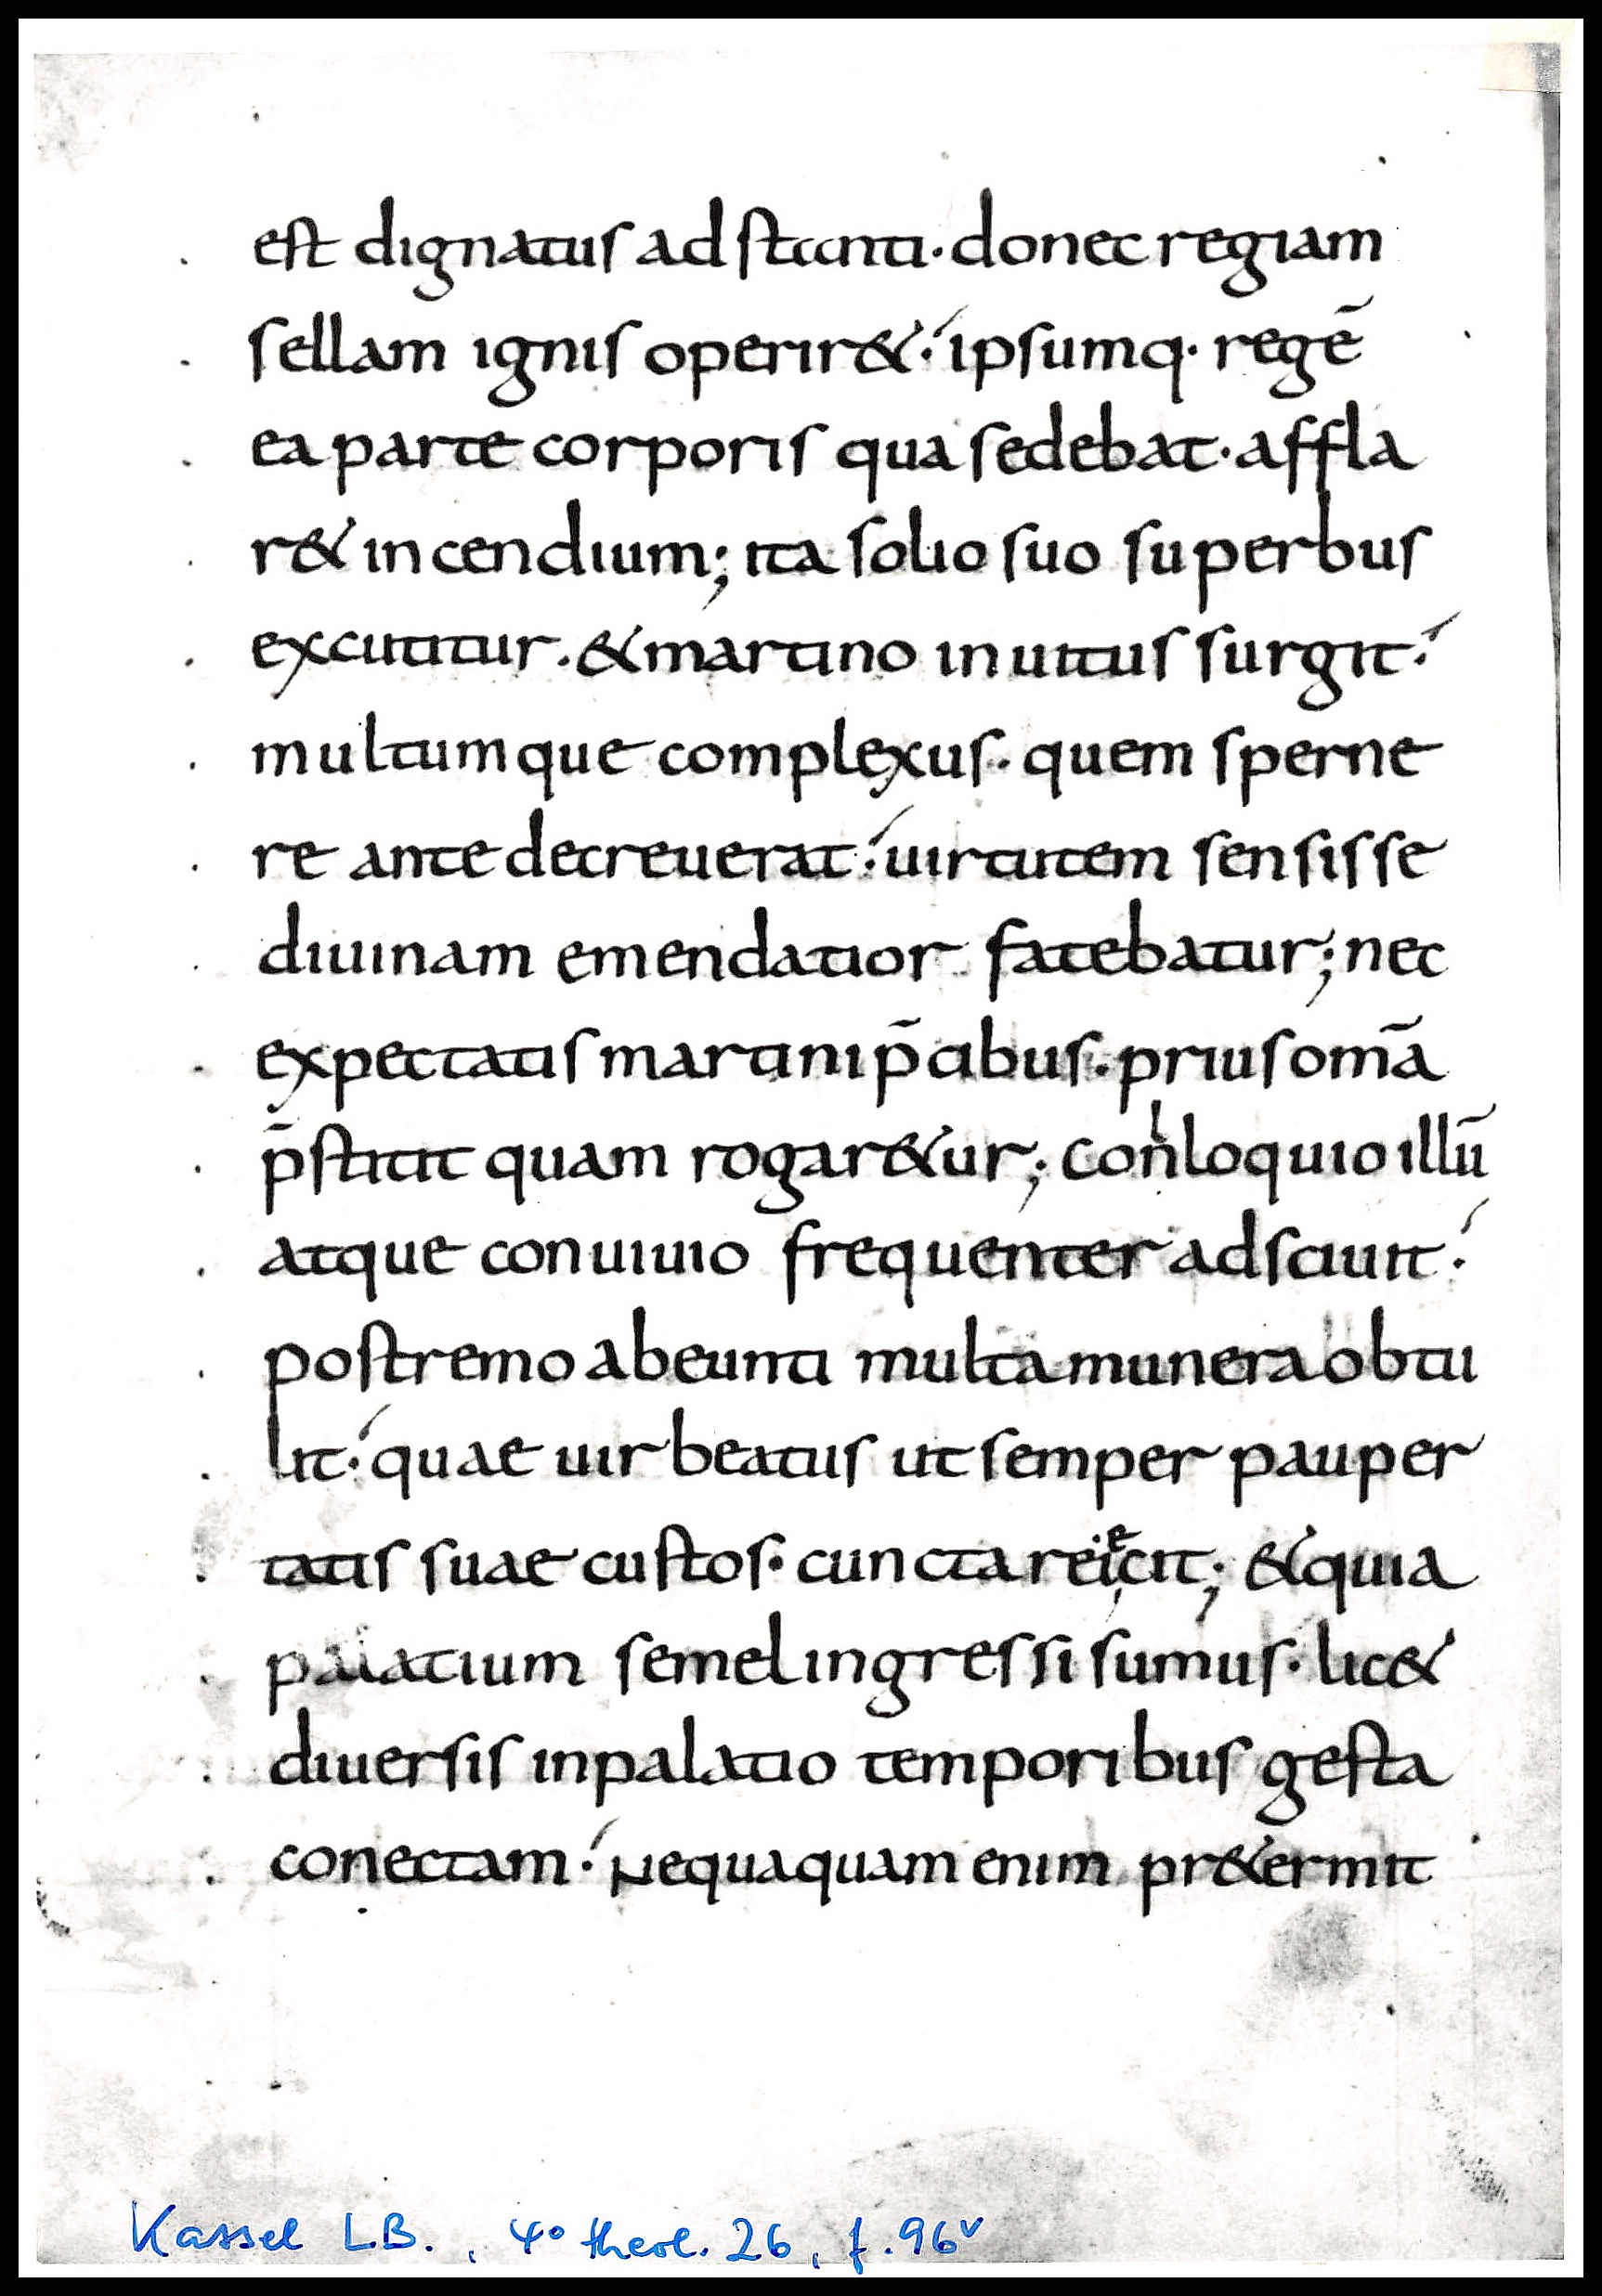 est dignatus ad stanti· donec regiam
sellam ignis operir&·́ ipsumq· regē
ea parte corporis qua sedebat· affla
r& incendium; ita solio suo superbus
excutitur· & martino inuitus surgit·́
multumque complexus· quem sperne
re ante decreuerat·́ uirtutem sensisse
diuinam emendatior fatebatur; nec
expectatis martini p̄cibus· prius om̄a
p̄stitit quam rogar&ur; conloquio illū
atque conuiuio frequenter adsciuit·́
postremo abeunti multa munera obtu
lit·́ quae uir beatus ut semper pauper
tatis suae custos· cuncta reiecit; & quia
palatium semel ingressi sumus· lic&
diuersis in palatio temporibus gesta
conectam·́ Nequaquam enim pr&ermit
Kassel L.B., 4° theol. 26, f. 96v